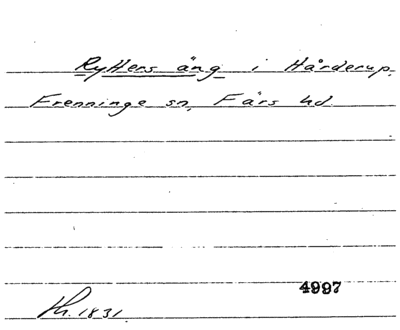 Ryttens äng i Hårderup,
Frenninge sn, Färs hd
4997
Kh. 1831